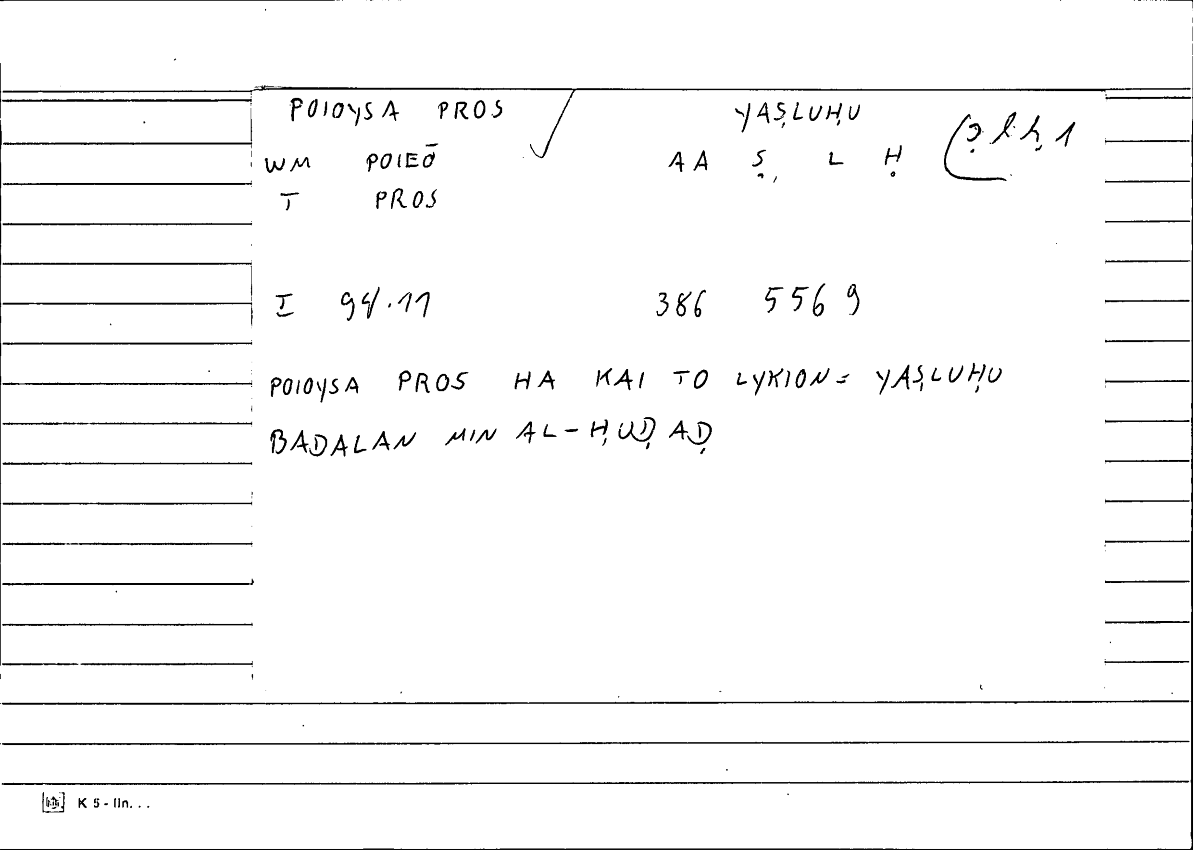 POIOYSA PROS YAṢLUḤU
WM POIEŌ AA Ṣ L Ḥ ṣlḥ 1
T PROS
I 94.11 386 5569
POIOYSA PROS HA KAI TO LYKION = YAṢLUḤU
BADALAN MIN AL-ḤUḌAḌ
K 5 - IIn. . .